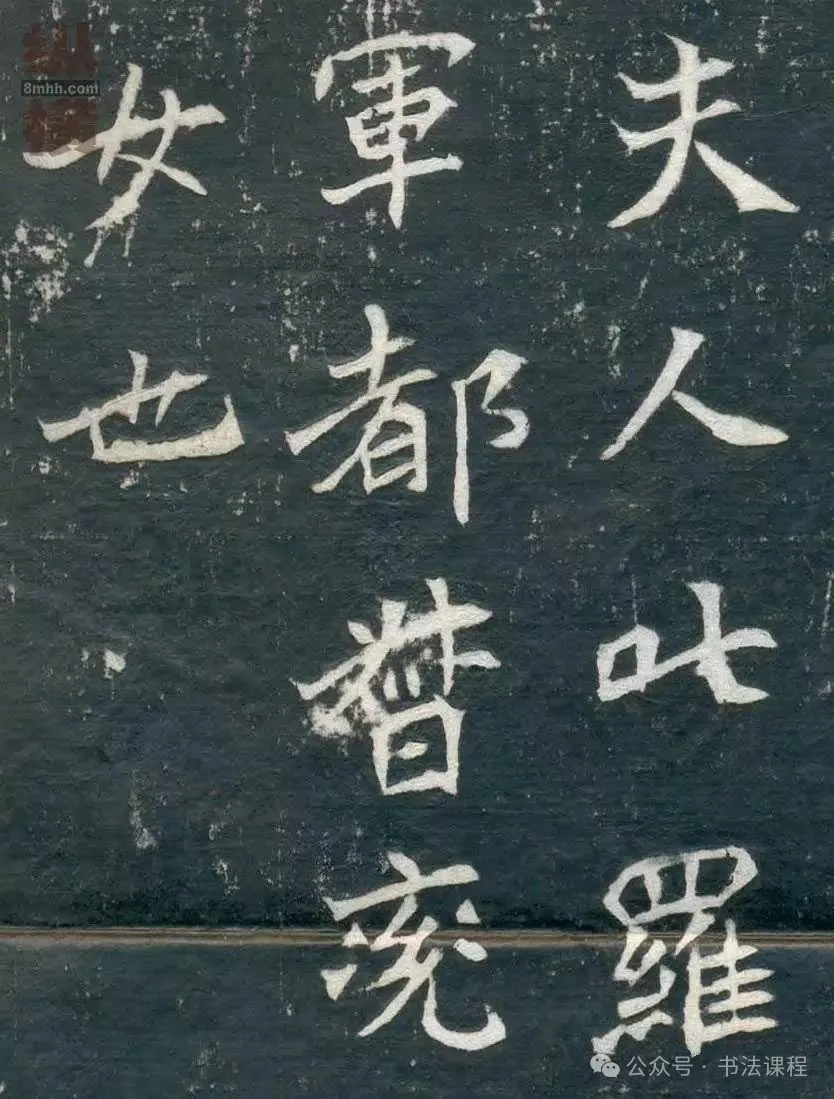 夫人叱羅
軍都督兗
女也
8mhh.com
公众号 · 书法课程